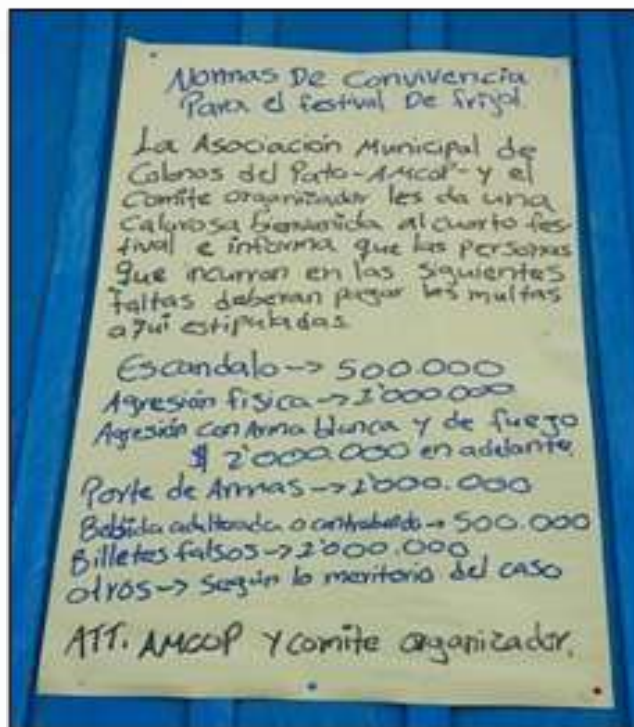 Normas De Convivencia
Para el festival De frijol
La Asociación Municipal de
Colonos del Pato-AMCOP-y el
Comite organizador les da una
Calurosa bienvenida al cuarto fes-
tival e informa que las personas
que incurran en las siguientes
faltas deberan pagar las multas
aqui estipuladas.
Escandalo-> 500.000
Agresión fisica->
Agresión con Arma blanca y de fuego
$ 2'000.000 en adelante.
Porte de Armas->
Bebida adulterada o contrabando-> 500.000
Billetes falsos->
otros-> según lo meritorio del caso
ATT. AMCOP y comite organizador.